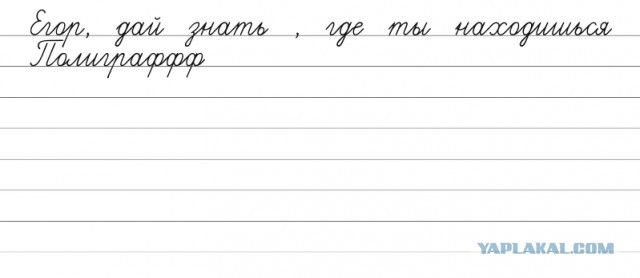 Егор, дай знать , где ты находишься
Полиграффф
YAPLAKAL.COM